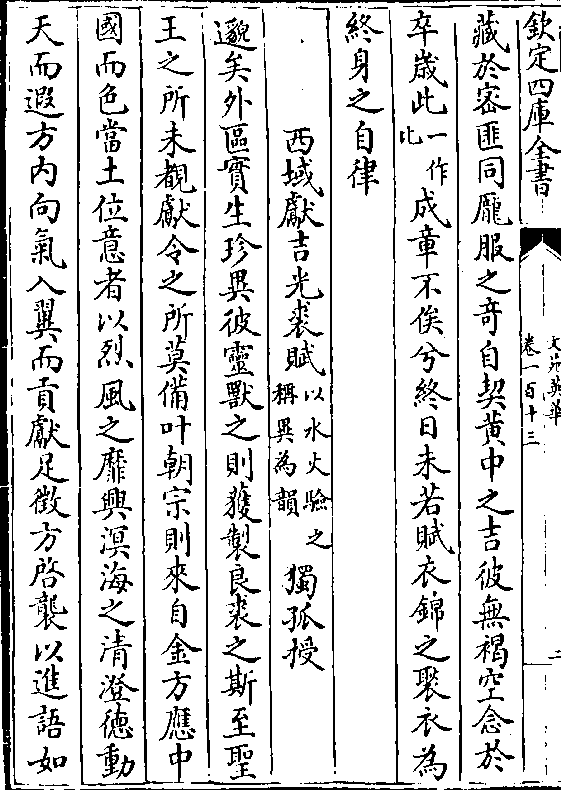 欽定四庫全書
文苑英華
卷一百十三
二
藏於宻匪同厖服之竒自契黄中之吉彼無褐空念於
卒歳此一作比成章不俟兮終日未若賦衣錦之褧衣為
終身之自律
西域獻吉光裘賦以水火驗之稱異為韻 獨孤授
邈矣外區實生珍異彼靈獸之則獲製良裘之斯至聖
王之所未覩獻令之所莫備叶朝宗則來自金方應中
國而色當土位意者以烈風之靡興溟海之清澄徳動
天而遐方内向氣入翼而貢獻足徴方啓襲以進語如